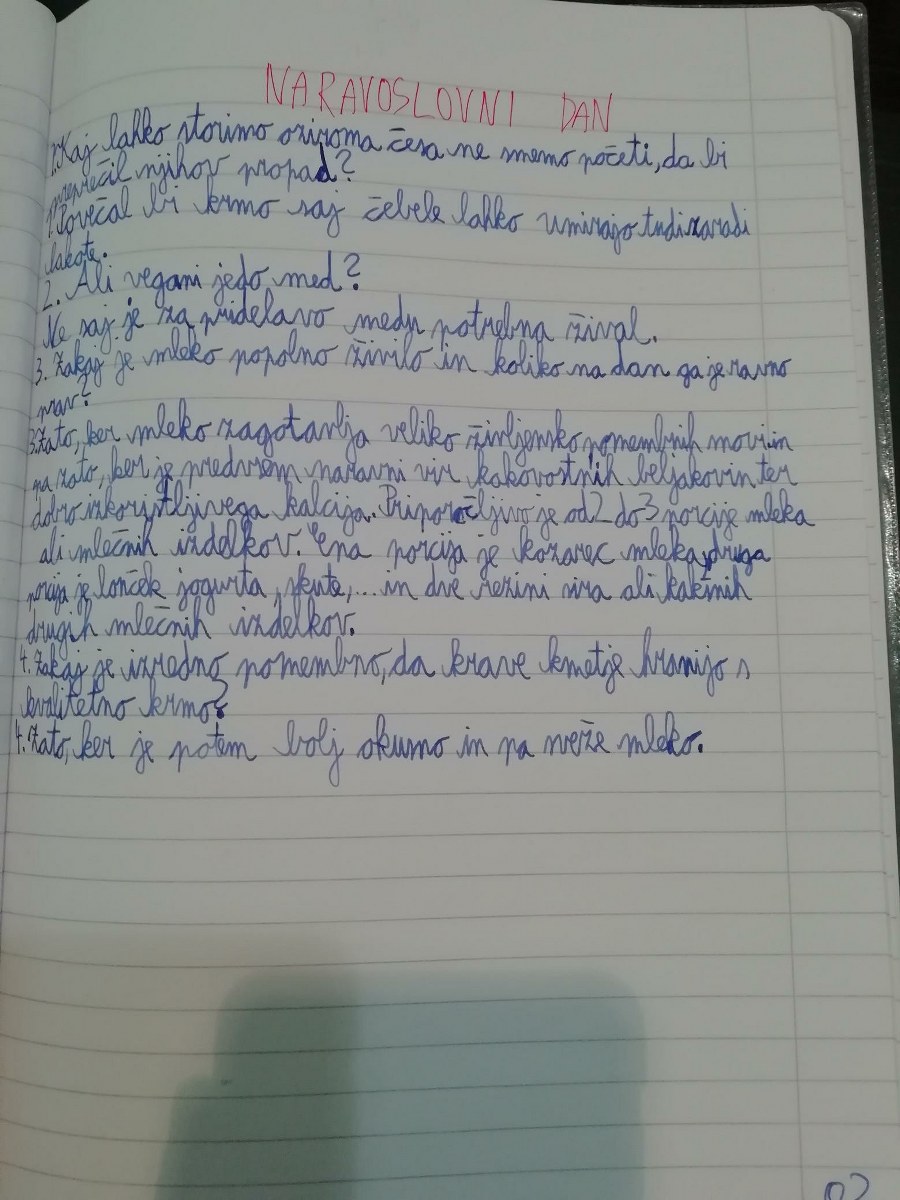 NARAVOSLOVNI DAN
1. Kaj lahko storimo oziroma česa ne smemo početi, da bi
preprečil njihov propad?
1. Povečal bi krmo saj čebele lahko umirajo tudi zaradi
lakote.
2. Ali vegani jedo med?
Ne saj je za pridelavo medu potrebna žival.
3. Zakaj je mleko popolno živilo in koliko na dan ga je ravno
prav?
3. Zato, ker mleko zagotavlja veliko življensko pomembnih snovi in
pa zato, ker je predvsem naravni vir kakovostnih beljakovin ter
dobro izkoristljivega kalcija. Priporočljivo je od 2 do 3 porcije mleka
ali mlečnih izdelkov. Ena porcija je kozarec mleka, druga
porcija je lonček jogurta, skute,... in dve rezini sira ali kakšnih
drugih mlečnih izdelkov.
4. Zakaj je izredno pomembno, da krave kmetje hranijo s
kvalitetno krmo?
4. Zato, ker je potem bolj okusno in pa sveže mleko.